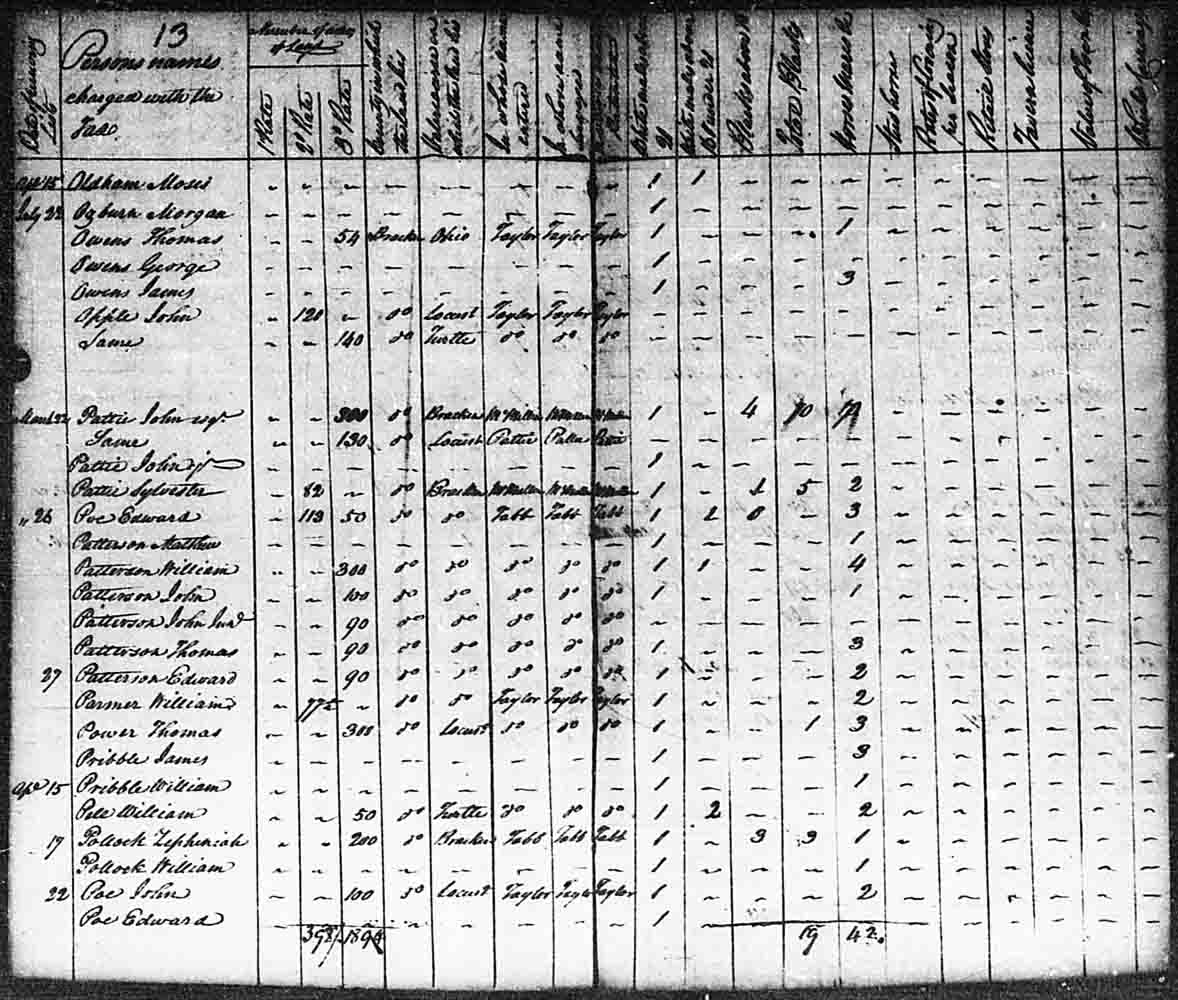 13
Persons names charged with the Tax
Number of acres of Land
1st Rate
2d Rate
3d Rate
County in which the land lies
In whose name entered
In whose name surveyed
White males above 21
Blacks above 16
Total Blacks
Stud horses
Retail Stores
Tavern license
Apl 15 Oldham Moses – – – – – – – – 1 1 – – – – – – – – –
July 22 Ogburn Morgan – – – – – – – – 1 – – – – – – – – – –
Owens Thomas – – 54 Bracken Ohio Taylor Taylor Taylor 1 – – – 1 – – – – – –
Owens George – – – – – – – – 1 – – – – – – – – –
Owens James – – – – – – – – 1 – – – 3 – – – – – –
Apple John – 120 – do Locust Taylor Taylor Taylor – – – – – – – – – – –
Same – – 140 do Turtle do do do – – – – – – – – – – –
March 22 Pattie John esqr. – – 300 do Bracken McMillen McMillen McMillen 1 – 4 10 – – – – – –
Same – – 130 do Locust Pattie Pattie Pattie – – – – – – – – – – –
Pattie John jr – – – – – – – – 1 – – – – – – – – – –
Pattie Sylvester – 82 – do Bracken McMillen McMillen McMillen 1 – 1 5 2 – – – – – –
" 26 Poe Edward – 113 50 do do Tabb Tabb Tabb 1 2 – 3 – – – – – –
Patterson Mathew – – – – – – – – 1 – – – 1 – – – – – –
Patterson William – – 300 do do do do do 1 1 – – 4 – – – – – –
Patterson John – – 100 do do do do do 1 – – – 1 – – – – – –
Patterson John Junr – – 90 do do do do do – – – – – – – – – – –
Patterson Thomas – – 90 do do do do do 1 – – – 3 – – – – – –
27 Patterson Edward – – 90 do do do do do 1 – – – 2 – – – – – –
Parmer William – 77½ – do do Taylor Taylor Taylor 1 – – – 2 – – – – – –
Power Thomas – – 300 do Locust do do do 1 – – 1 3 – – – – – –
Pribble James – – – – – – – – 1 – – – 3 – – – – – –
Apl 15 Pribble William – – – – – – – – 1 – – – 1 – – – – – –
Pele William – – 50 do Turtle do do do 1 2 – – 2 – – – – – –
19 Pollock Zepheniah – – 200 do Bracken Tabb Tabb Tabb 1 – 3 3 1 – – – – – –
Pollock William – – – – – – – – 1 – – – 1 – – – – – –
22 Poe John – – 100 do Locust Taylor Taylor Taylor 1 – – – 2 – – – – – –
Poe Edward – – – – – – – – 1 – – – – – – – – – –
392½ 1894 19 42